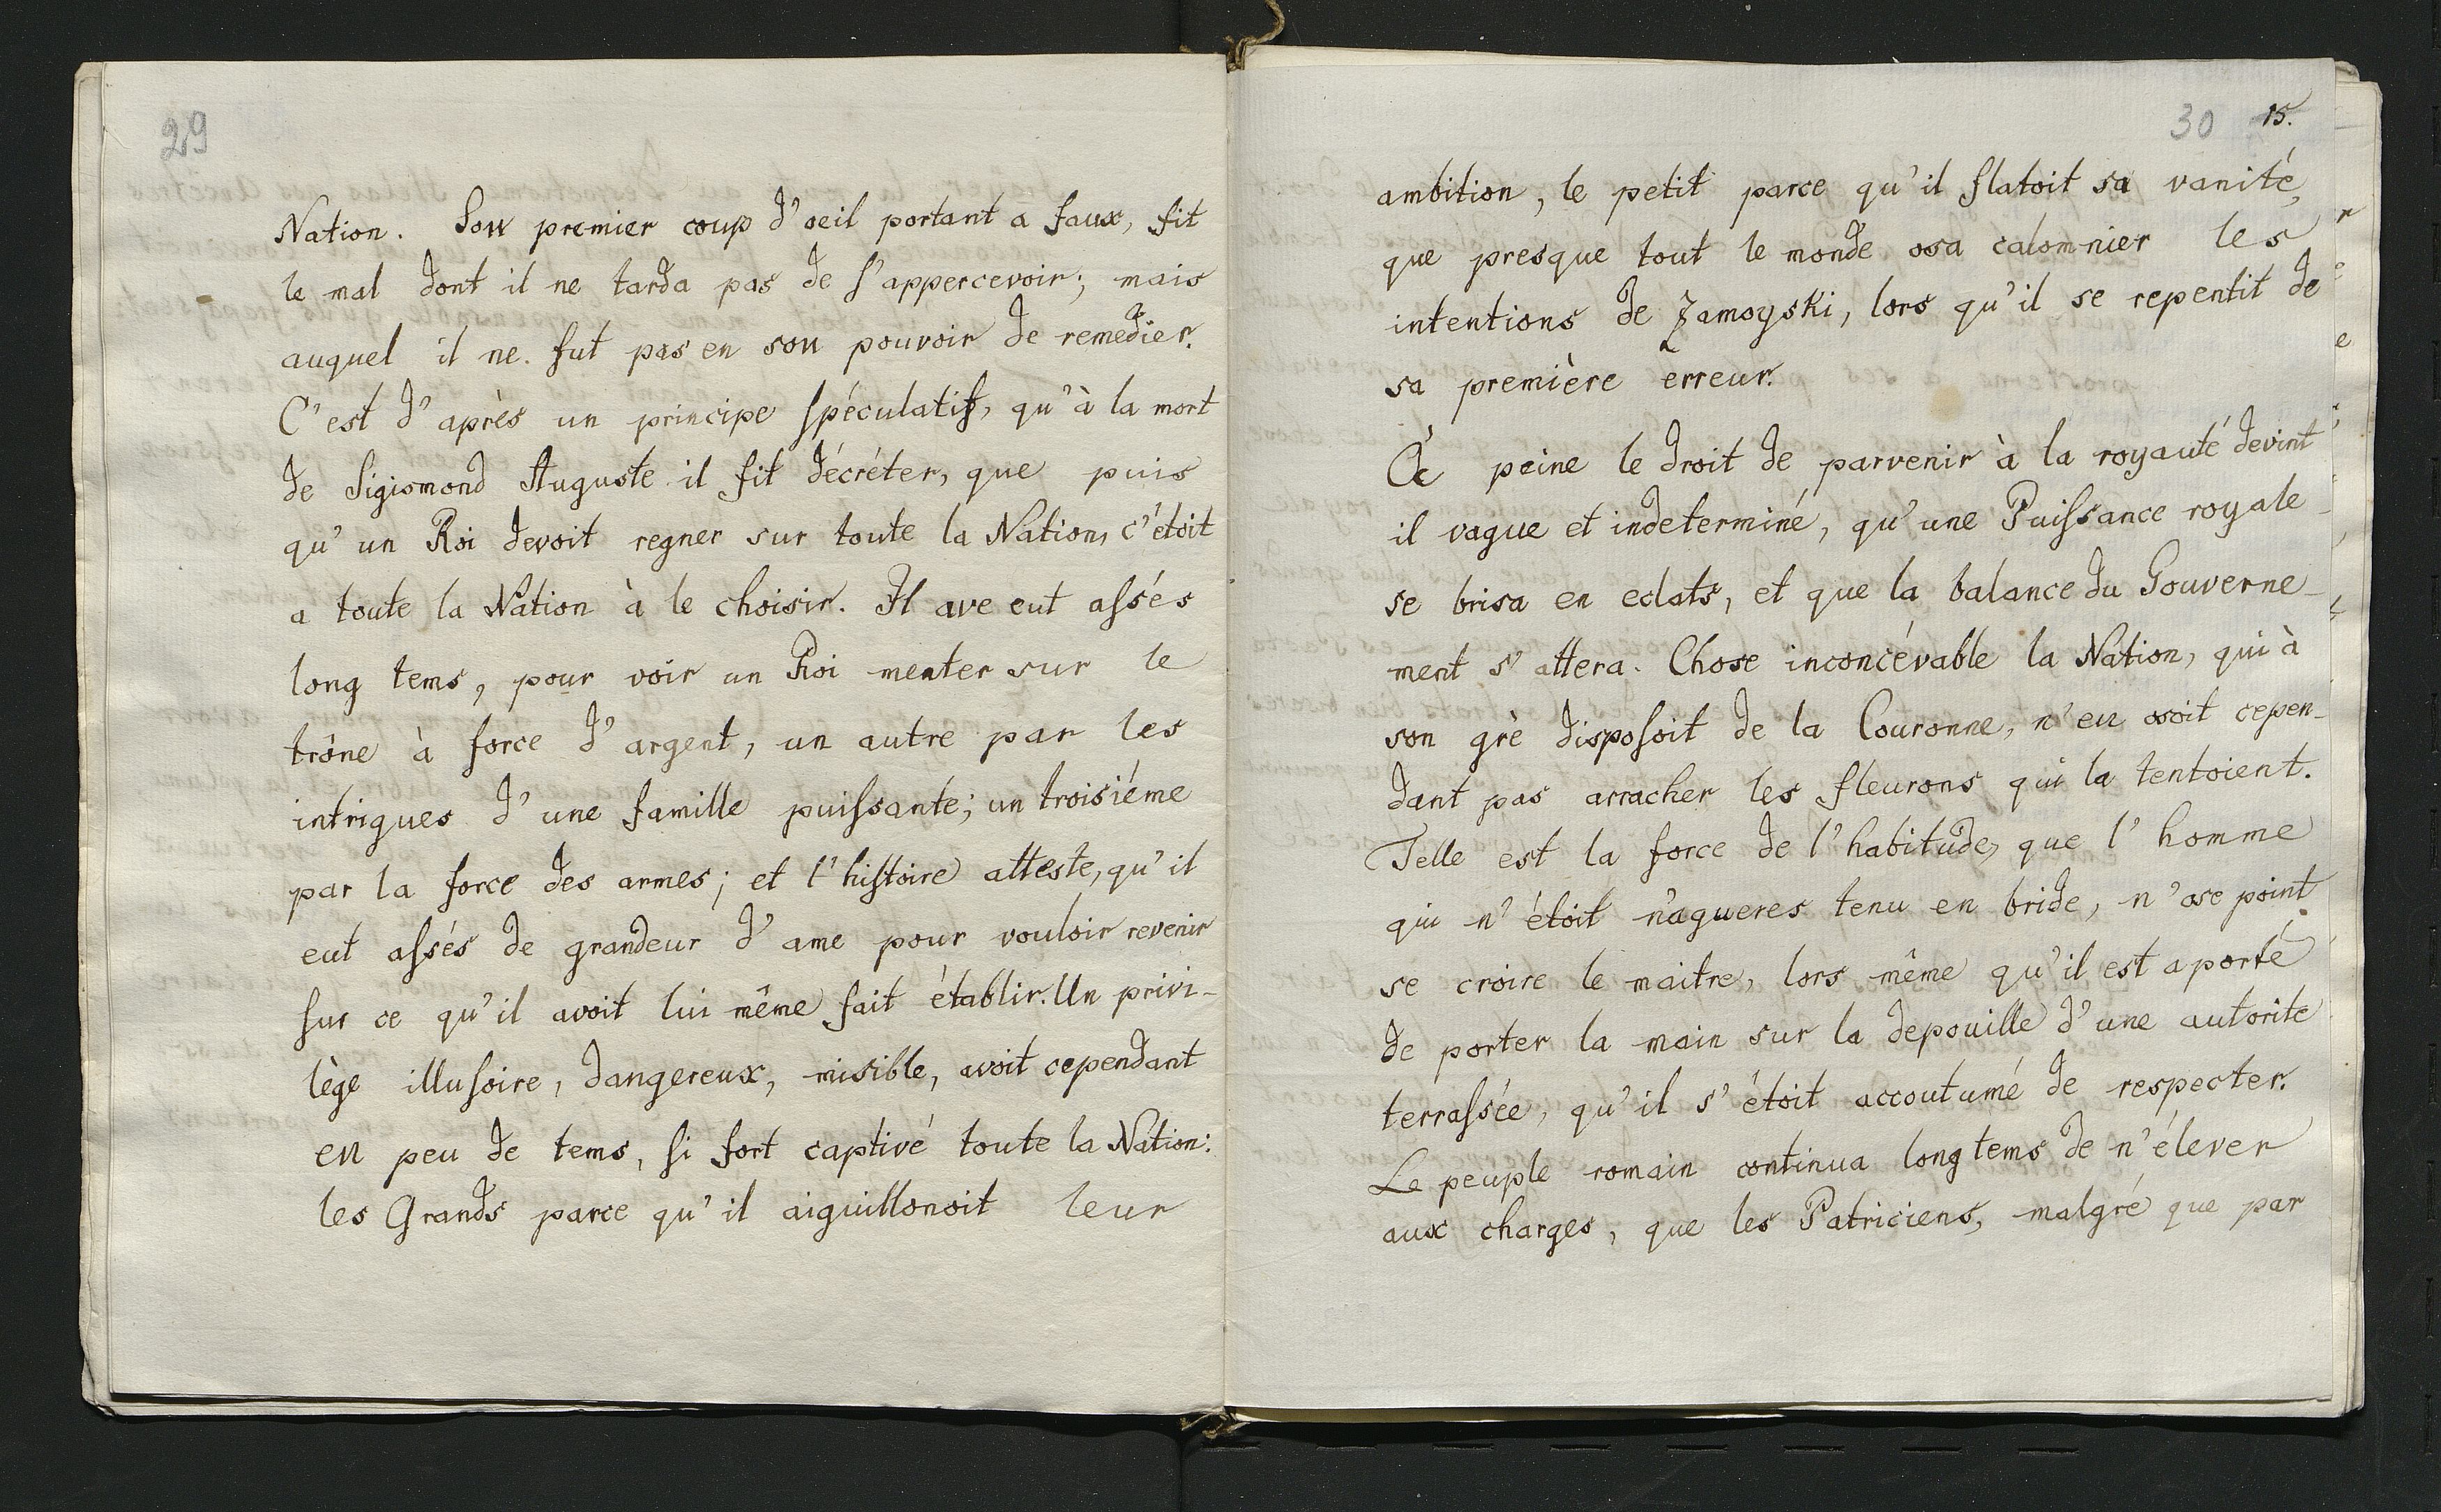 29
Nation. Son premier coup d'oeil portant a faux, fit
le mal dont il ne tarda pas de s'appercevoir; mais
auquel il ne fut pas en son pouvoir de remedier.
C'est d'après un principe spéculatif, qu'à la mort
de Sigismond Auguste il fit décréter, que puis
qu'un Roi devoit regner sur toute la Nation, c'étoit
a toute la Nation à le choisir. Il ave eut assés
long tems, pour voir un Roi menter sur le
trône à force d'argent, un autre par les
intrigues d'une famille puissante; un troisiéme
par la force des armes; et l'histoire atteste, qu'il
eut assés de grandeur d'ame pour vouloir revenir
sur ce qu'il avoit lui même fait établir. Un privi-
lège illusoire, dangereux, misible, avoit cependant
en peu de tems, si fort captivé toute la Nation:
les Grands parce qu'il aiguillonoit leur
30 15.
ambition, le petit parce qu'il flatoit sa vanité,
que presque tout le monde osa calomnier les
intentions de Zamoyski, lors qu'il se repentit de
sa première erreur.
À peine le droit de parvenir à la royauté devint
il vague et indeterminé, qu'une Puissance royale
se brisa en eclats, et que la balance du Gouverne-
ment s'attera. Chose inconcévable la Nation, qui à
son grè disposoit de la Couronne, n'en osoit cepen-
dant pas arracher les fleurons qui la tentoient.
Telle est la force de l'habitude, que l'homme
qui n'étoit n'agueres tenu en bride, n'ose point
se croire le maitre, lors même qu'il est aporté
de porter la main sur la depouille d'une autorite
terrassée, qu'il s'étoit accoutumé de respecter.
Le peuple romain continua longtems de n'élever
aux charges, que les Patriciens, malgré que par